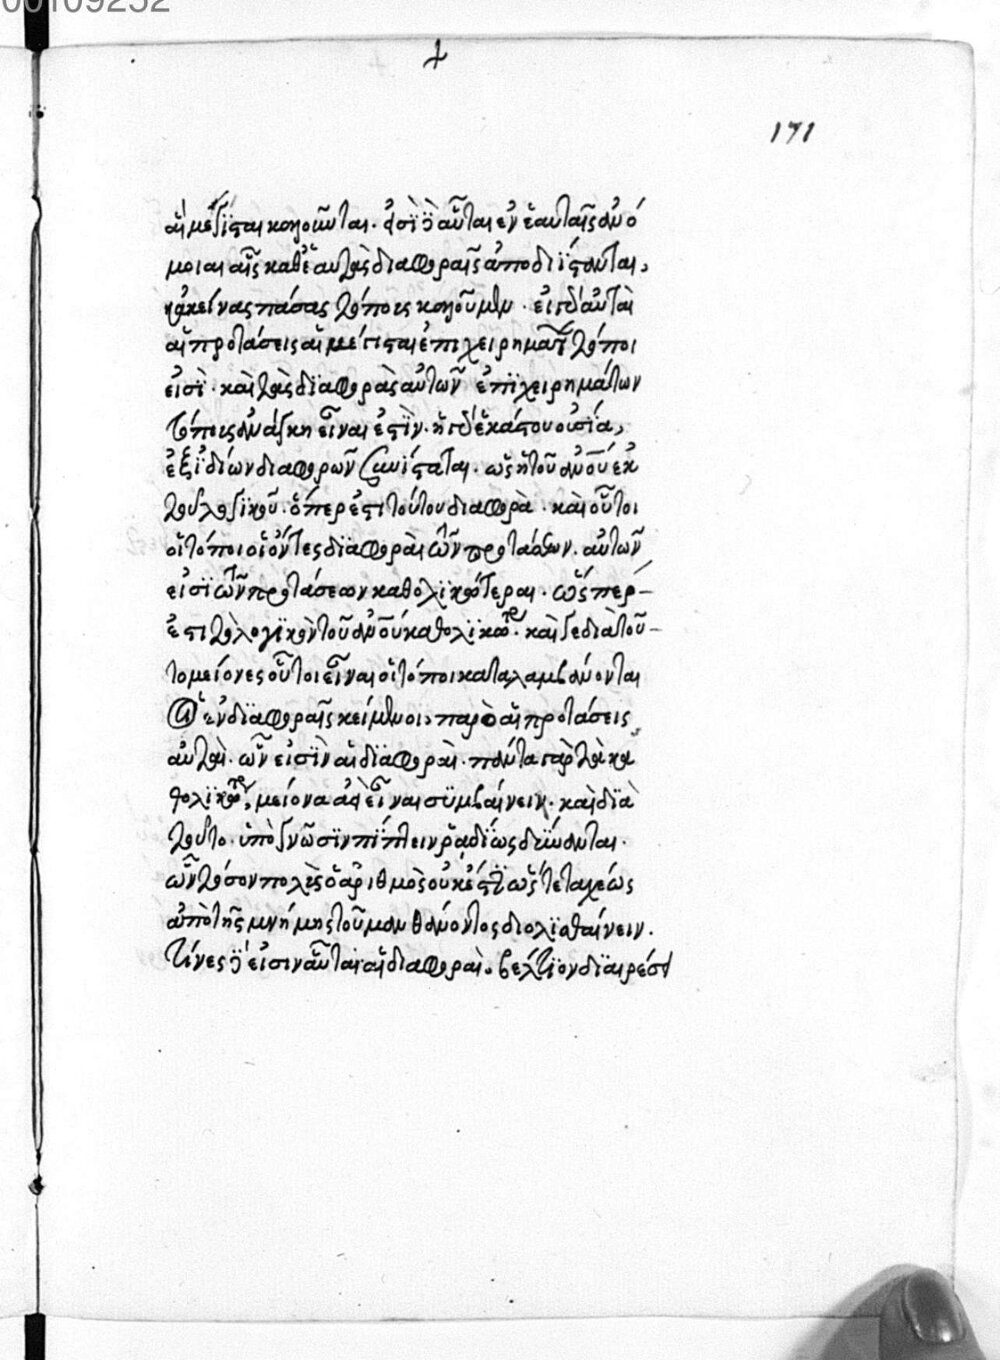 00109252
171
αἳ μέγισται καλοῦνται. εἰσὶ δὲ αὗται ἐν ἑαυταῖς ἀνό
μοιαι αἷς καθ' ἑαυτὰς διαφοραῖς ἀποδιΐστανται,
κἀκείνας πάσας τόπους καλοῦμεν. εἰ δ' αὐταὶ
αἱ προτάσεις αἱ μέγισται ἐπιχειρημάτων τόποι
εἰσὶ. καὶ τὰς διαφορὰς αὐτῶν ἐπιχειρημάτων
τόπους ἀνάγκη εἶναι ἐστὶν. ἡ γὰρ ἑκάστου οὐσία,
ἐξ ἰδίων διαφορῶν συνίσταται. ὡς ἡ τοῦ ἀνοῦ ἐκ
τοῦ λογικοῦ. ὅπερ ἐστὶ τούτου διαφορὰ. καὶ οὗτοι
οἱ τόποι οἱ ὄντες διαφοραὶ τῶν προτάσεων. αὐτῶν
εἰσὶ τῶν προτάσεων καθολικώτεραι. ὥσπερ
ἐστὶ τὸ λογικὸν τοῦ ἀνοῦ καθολικώτερον. καὶ γε διὰ τοῦ
το μείονες οὗτοι εἶναι οἱ τόποι καταλαμβάνονται
οἱ ἐν διαφοραῖς κείμενοι, παρὸ αἱ προτάσεις
αὐταὶ. ὧν εἰσὶν αἱ διαφοραὶ. πάντα γὰρ τὰ κα
θολικώτερα, μείονα ἀεὶ εἶναι συμβαίνειν. καὶ διὰ
τοῦτο. ὑπὸ γνῶσιν πίπτειν ῥαδίως δύνανται.
ὧν τόσον πολὺς ὁ ἀριθμὸς οὐκ ἔστι ὥστε ταχέως
ἀπὸ τῆς μνήμης τοῦ μανθάνοντος διολισθαίνειν.
τίνες δέ εἰσιν αὗται αἱ διαφοραὶ. βέλτιον διαιρέσει